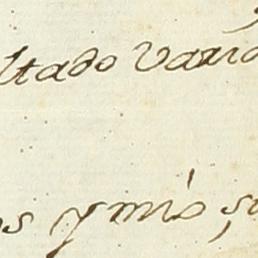 ltado varia
os y mis, su